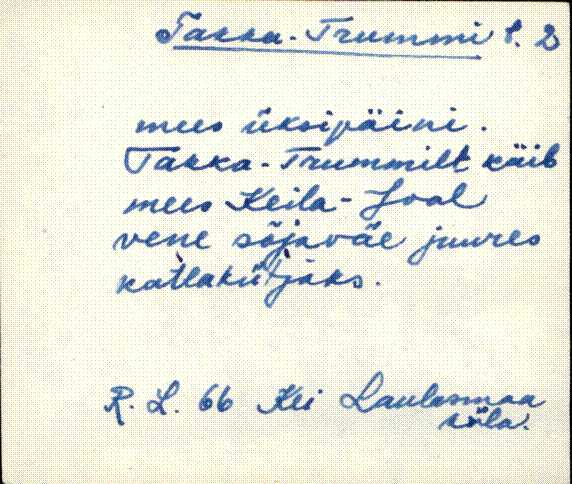 Takka-Trummi l. 2
mees üksipäini.
Takka-Trummilt käib
mees Keila-Joal
vene sõjaväe juures
katlakütjaks.
R. L. 66 Kei Laulasmaa
küla.